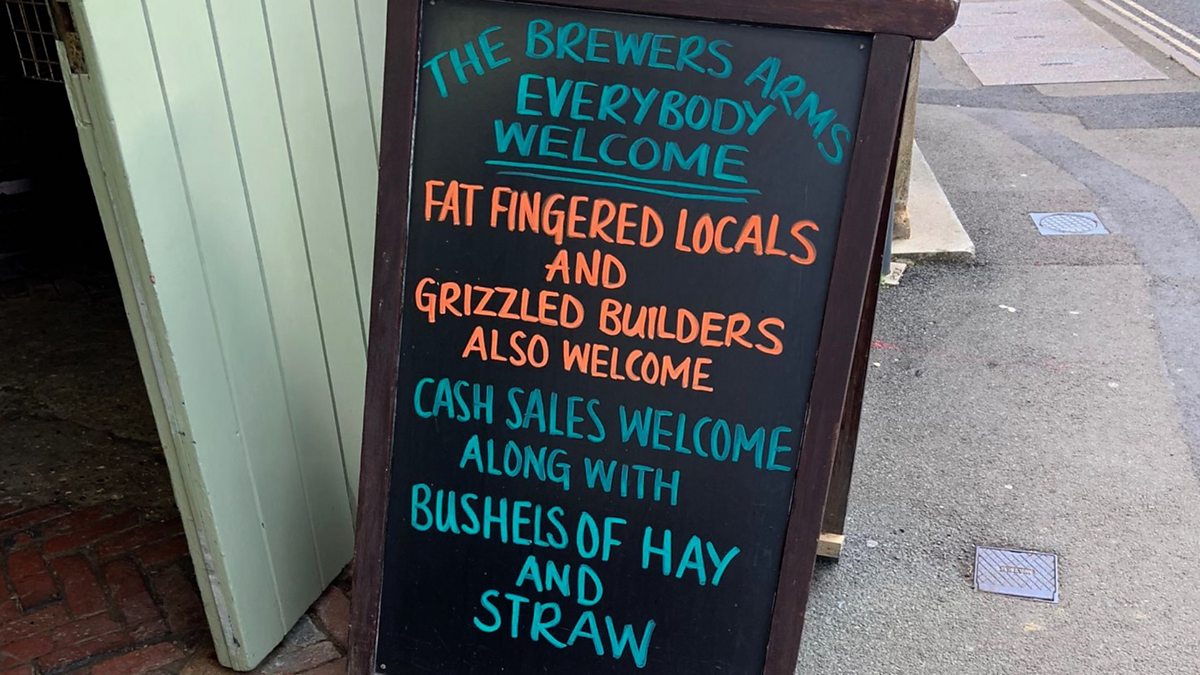 THE BREWERS ARMS
EVERYBODY
WELCOME
FAT FINGERED LOCALS
AND
GRIZZLED BUILDERS
ALSO WELCOME
CASH SALES WELCOME
ALONG WITH
BUSHELS OF HAY
AND
STRAW